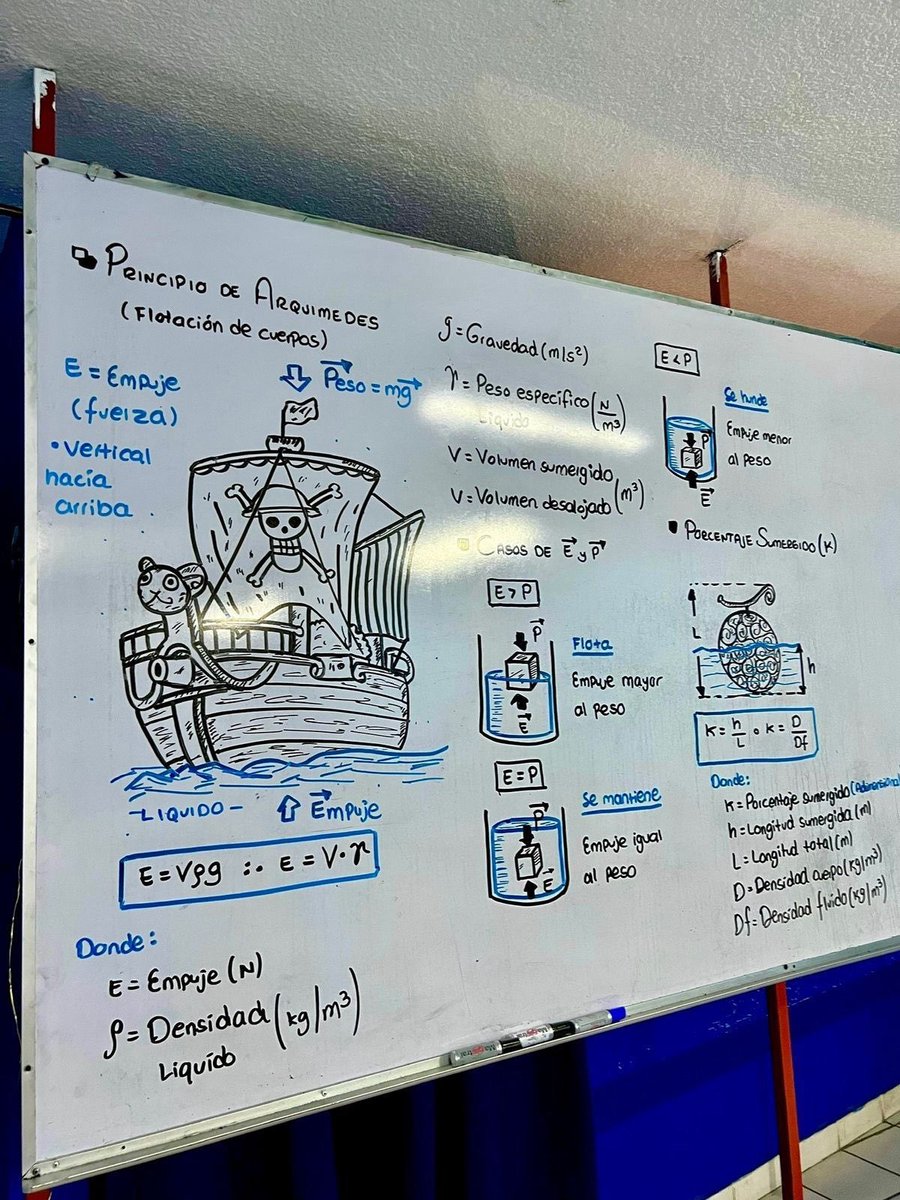 PRINCIPIO DE ARQUIMEDES
(Flotación de cuerpos)
E = Empuje
(fuerza)
• Vertical
hacía
arriba
Peso = mg
-LIQUIDO-
Empuje
E = Vρg ∴ E = V·γ
Donde:
E = Empuje (N)
ρ = Densidad (kg/m³)
Liquido
g = Gravedad (m/s²)
γ = Peso específico (N/m³)
Liquido
V = Volumen sumergido
V = Volumen desalojado (m³)
CASOS DE E y P
E > P
P
E
Flota
Empuje mayor
al peso
E = P
P
E
Se mantiene
Empuje igual
al peso
E < P
P
E
Se hunde
Empuje menor
al peso
PORCENTAJE SUMERGIDO (K)
L
h
K = h/L o K = D/Df
Donde:
K = Porcentaje sumergido (Adimensional)
h = Longitud sumergida (m)
L = Longitud total (m)
D = Densidad cuerpo (kg/m³)
Df = Densidad fluido (kg/m³)
Magistral